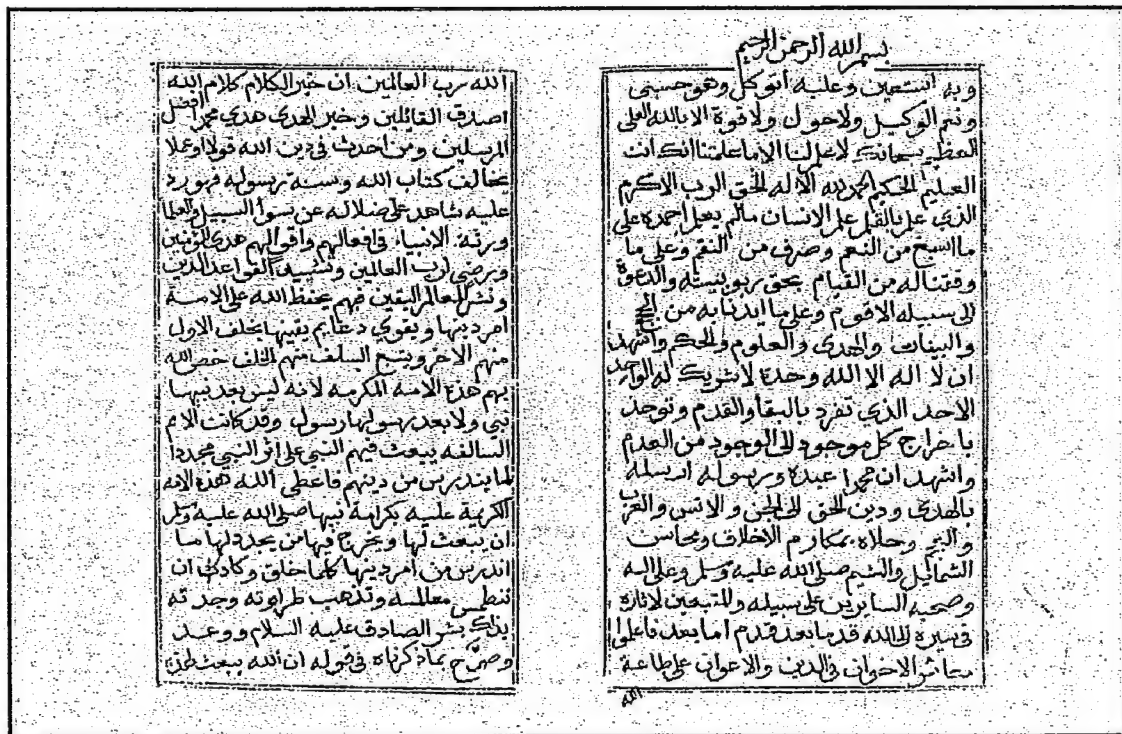 بسم الله الرحمن الرحيم
وبه استعين وعليه أتوكل وهو حسبي
ونعم الوكيل ولاحول ولاقوة الا بالله العلي
العظيم سبحانك لاعلم لنا الا ما علمتنا انك انت
العليم الحكيم الحمد لله الاله الحق الرب الاكرم
الذي علم بالقلم علم الانسان مالم يعلم احمده على
ما اسبغ من النعم وصرف من النقم وعلى ما
وفقنا له من القيام بحق ربوبيته والدعوة
الى سبيله الاقوم وعلى ما ايدنا به من
والبينات والهدى والعلوم والحكم واشهد
ان لا اله الا الله وحده لاشريك له الواحد
الاحد الذي تفرد بالبقأ والقدم وتوحد
باخراج كل موجود الى الوجود من العدم
واشهد ان محمدا عبده ورسوله ارسله
بالهدى ودين الحق الى الجن والانس والعرب
والعجم وحلاه بمكارم الاخلاق ومحاسن
الشمائيل والشيم صلى الله عليه وسلم وعلى اله
وصحبه السايرين على سبيله والمتبعين لاثاره
في سيره الى الله قدما بعد قدم اما بعد فاعلموا
معاشر الاخوان في الدين والاعوان على طاعة
الله
الله رب العالمين ان خير الكلام كلام الله
اصدق القائلين وخير الهدي هدي محمد افضل
المرسلين ومن احدث في دين الله قولا او عملا
يخالف كتاب الله وسنة رسوله فهو رد
عليه شاهد على ضلاله عن سوأ السبيل والعلما
ورثة الانبياء في افعالهم واقوالهم هدى للمؤمنين
ورضى لرب العالمين وتشييد لقواعد الدين
ونشر لمعالم اليقين فهم يحفظ الله على الامة
امر دينها ويقوي دعايم يقينها يخلف الاول
منهم الاخر ويتبع السلف منهم الخلف خص الله
بهم هذه الامه المكرمه لانه ليس بعد نبيها
نبي ولا بعد رسولها رسول وقد كانت الامم
السالفه يبعث فيهم النبي على اثر النبي مجددا
لما يندرس من دينهم فاعطى الله هذه الامه
الكريمة عليه بكرامة نبيها صلى الله عليه وسلم
ان يبعث لها ويخرج فيها من يجدد لها ما
اندرس من امر دينها كلما خلق وكادت ان
تنطمس معالمه وتذهب طراوته وجدته
بذلك بشر الصادق عليه السلام ووعد
وصرح بما ذكرناه في قوله ان الله يبعث لهذه